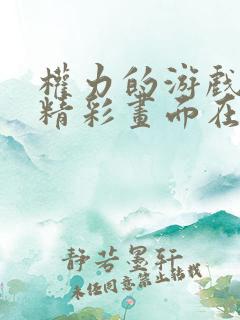 權力的游戲
精彩畫而在
静若墨轩
未经同意禁止转载